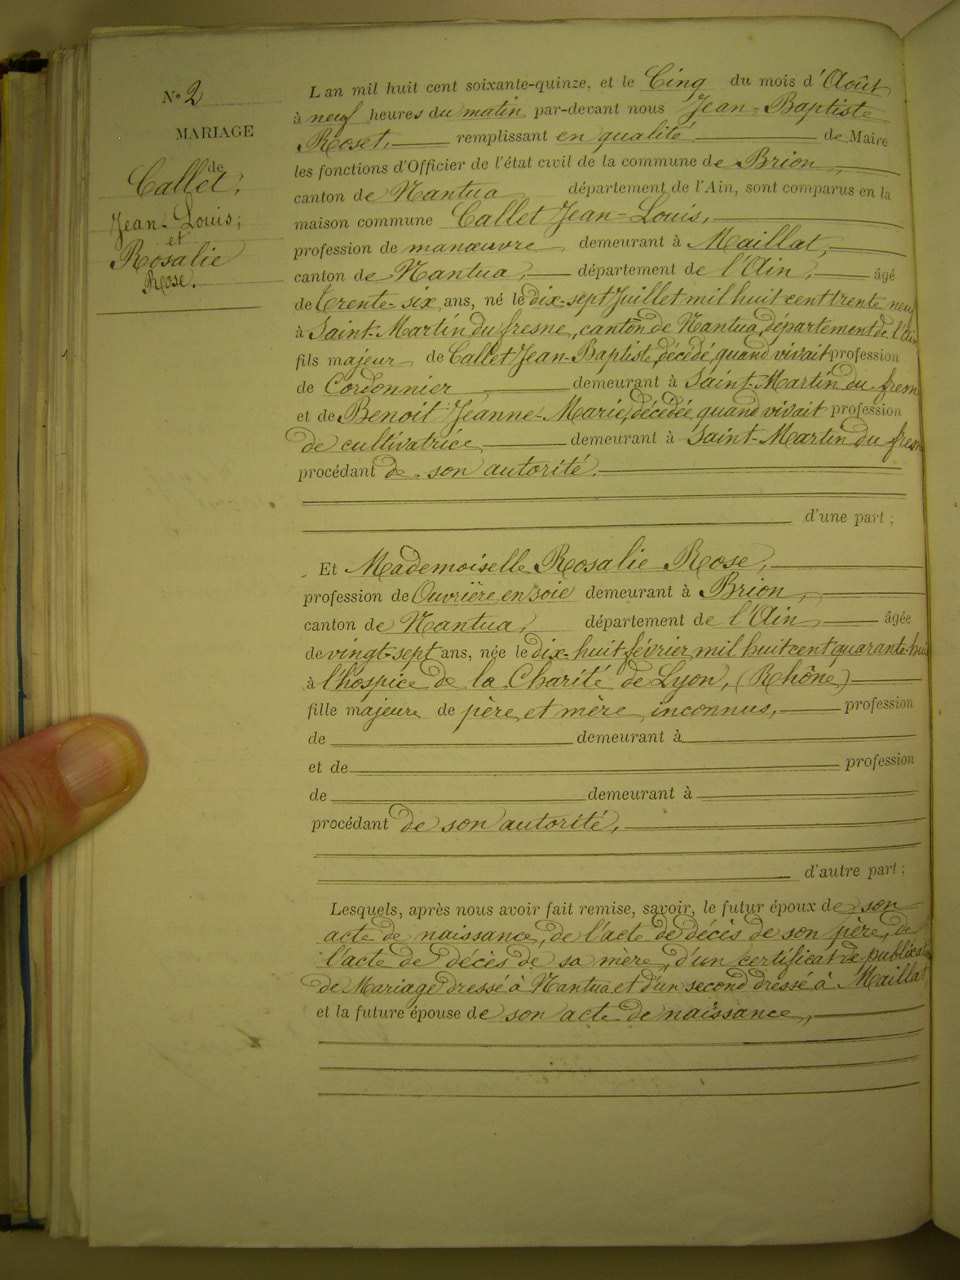 N° 2
MARIAGE
de
Callet,
Jean-Louis;
et
Rosalie
Rose.
L'an mil huit cent soixante-quinze, et le Cinq du mois d'Août
à neuf heures du matin par-devant nous Jean-Baptiste
Roset, remplissant en qualité de Maire
les fonctions d'Officier de l'état civil de la commune de Brion,
canton de Nantua département de l'Ain, sont comparus en la
maison commune Callet Jean-Louis,
profession de manœuvre demeurant à Maillat,
canton de Nantua, département de l'Ain, âgé
de trente-six ans, né le dix-sept Juillet mil huit cent trente neuf
à Saint-Martin du fresne, canton de Nantua, département de l'Ain
fils majeur de Callet Jean-Baptiste, décédé, quand vivait profession
de Cordonnier, demeurant à Saint-Martin du fresne
et de Benoit Jeanne-Marie, décédée, quand vivait profession
de cultivatrice, demeurant à Saint-Martin du fresne
procédant de son autorité.
d'une part;
Et Mademoiselle Rosalie Rose,
profession de Ouvrière en soie demeurant à Brion,
canton de Nantua, département de l'Ain âgée
de vingt-sept ans, née le dix-huit février mil huit cent quarante-huit
à l'hospice de la Charité de Lyon, (Rhône)
fille majeure de père et mère inconnus, profession
de demeurant à
et de profession
de demeurant à
procédant de son autorité,
d'autre part;
Lesquels, après nous avoir fait remise, savoir, le futur époux de son
acte de naissance, de l'acte de décès de son père, de
l'acte de décès de sa mère, d'un certificat de publication
de Mariage dressé à Nantua et d'un second dressé à Maillat,
et la future épouse de son acte de naissance,